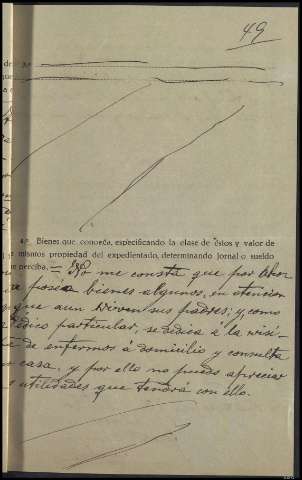 49
de
4.º Bienes que conozca, especificando la clase de éstos y valor de
mismos propiedad del expedientado, determinando jornal o sueldo
e perciba. =
no me consta que por
posea bienes algunos, en atencion
que aun viven sus padres; y, como
médico particular, se dedica á la visi-
de enfermos á domicilio y consulta
casa, y por ello no puedo apreciar
s utilidades que tendrá con ello.